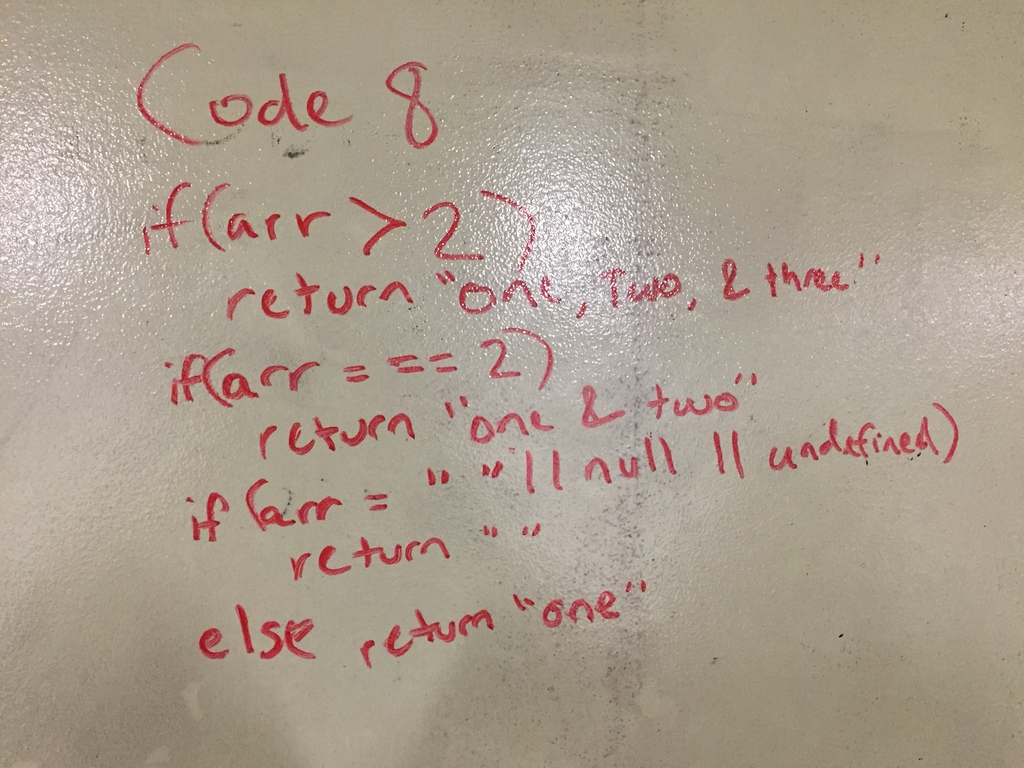 Code 8
if(arr > 2)
return "one, Two, & three"
if(arr = == 2)
return "one & two"
if (arr = " " || null || undefined)
return " "
else return "one"